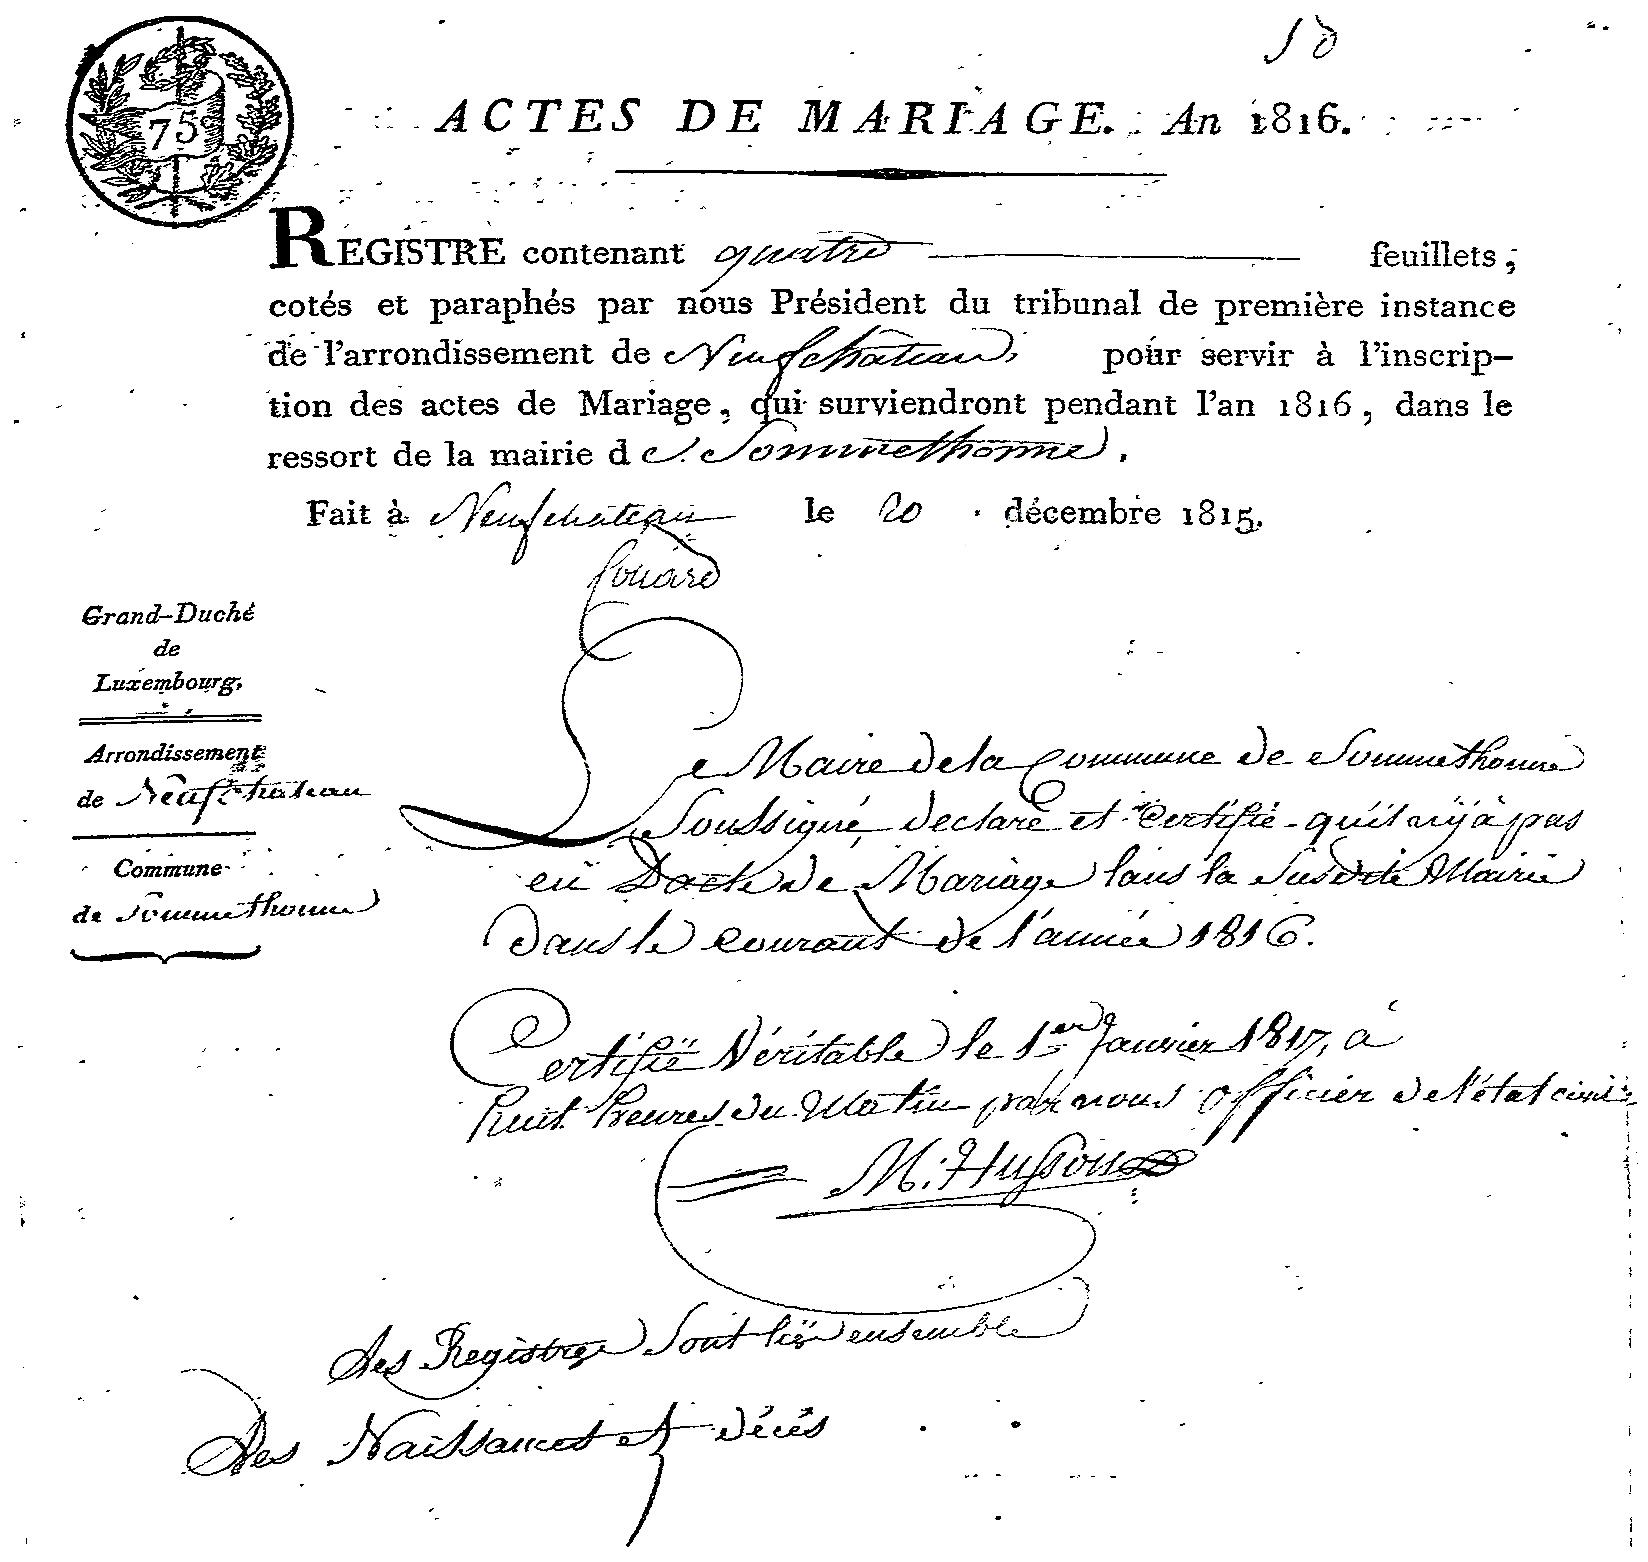 75
ACTES DE MARIAGE. An 1816.
REGISTRE contenant quatre feuillets,
cotés et paraphés par nous Président du tribunal de première instance
de l'arrondissement de Neufchateau, pour servir à l'inscrip-
tion des actes de Mariage, qui surviendront pendant l'an 1816, dans le
ressort de la mairie de Sommethonne.
Fait à Neufchateau le 20 décembre 1815.
Grand-Duché
de
Luxembourg.
Arrondissement
de Neufchateau
Commune
de Sommethonne
Le Maire de la Commune de Sommethonne
Soussigné, declare et Certifie qu'il ny à pas
eü D'acte de Mariage dans la Susdite Mairie
dans le courant de l'année 1816.
Certifié Véritable le 1er Janvier 1817, à
huit heures du Matin par nous officier de l'état civil
M. Husson
des Registre Sont lié ensemble
des Naissances et décés